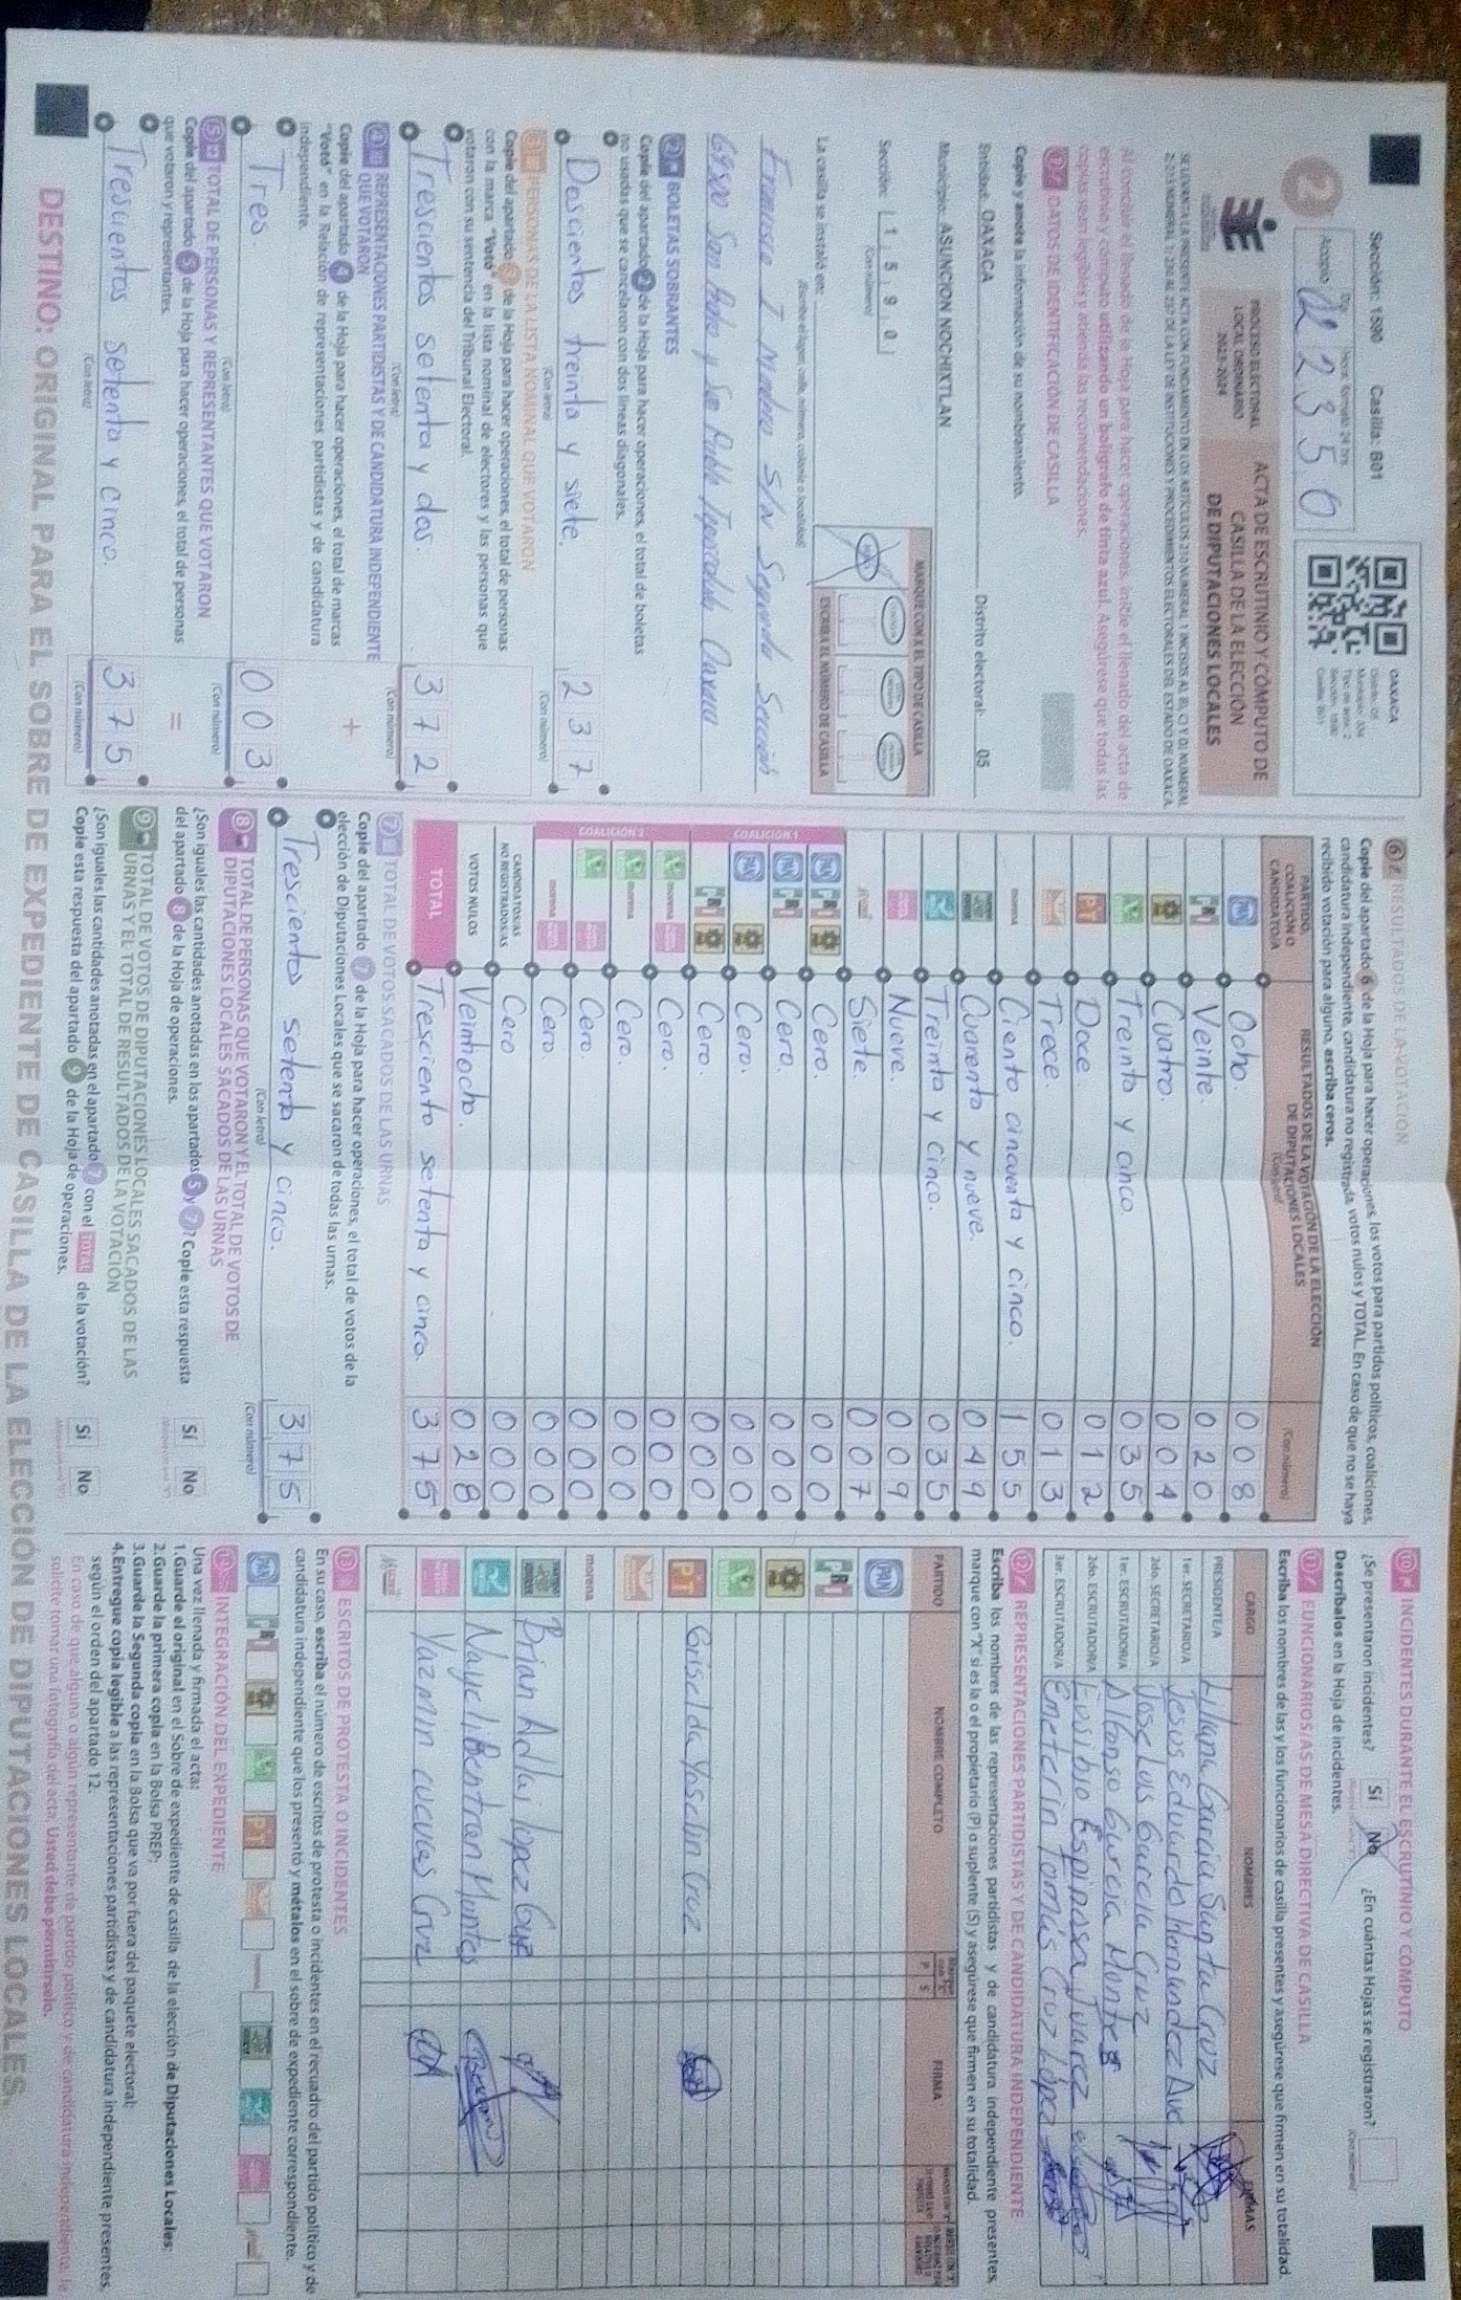 Sección: 1590 Casilla: B01
Acopio
Día Hora: formato 24 hrs.
02 23 50
OAXACA
2
PROCESO ELECTORAL
LOCAL ORDINARIO
2023-2024
ACTA DE ESCRUTINIO Y CÓMPUTO DE
CASILLA DE LA ELECCIÓN
DE DIPUTACIONES LOCALES
Al concluir el llenado de la Hoja para hacer operaciones, inicie el llenado del acta de
escrutinio y cómputo utilizando un bolígrafo de tinta azul. Asegúrese que todas las
copias sean legibles y atienda las recomendaciones.
1 DATOS DE IDENTIFICACIÓN DE CASILLA
Copie y anote la información de su nombramiento.
Entidad: OAXACA Distrito electoral: 05
Municipio: ASUNCION NOCHIXTLAN
Sección: 1 5 9 0
(Con número)
MARQUE CON X EL TIPO DE CASILLA
ESCRIBA EL NÚMERO DE CASILLA
La casilla se instaló en:
(Escriba el lugar, calle, número, colonia o localidad)
Francisco I Madero S/N Segunda Sección
69500 San Pedro y San Pablo Teposcolula Oaxaca
2 BOLETAS SOBRANTES
Copie del apartado 2 de la Hoja para hacer operaciones, el total de boletas
no usadas que se cancelaron con dos líneas diagonales.
Doscientos treinta y siete. 2 3 7
(Con letra) (Con número)
3 PERSONAS DE LA LISTA NOMINAL QUE VOTARON
Copie del apartado 3 de la Hoja para hacer operaciones, el total de personas
con la marca "Votó" en la lista nominal de electores y las personas que
votaron con su sentencia del Tribunal Electoral.
Trescientos setenta y dos. 3 7 2
(Con letra) (Con número)
4 REPRESENTACIONES PARTIDISTAS Y DE CANDIDATURA INDEPENDIENTE
QUE VOTARON
Copie del apartado 4 de la Hoja para hacer operaciones, el total de marcas
"Votó" en la Relación de representaciones partidistas y de candidatura
independiente.
+
Tres. 0 0 3
(Con letra) (Con número)
5 TOTAL DE PERSONAS Y REPRESENTANTES QUE VOTARON
Copie del apartado 5 de la Hoja para hacer operaciones, el total de personas
que votaron y representantes.
=
Trescientos setenta y cinco. 3 7 5
(Con letra) (Con número)
6 RESULTADOS DE LA VOTACIÓN
Copie del apartado 6 de la Hoja para hacer operaciones, los votos para partidos políticos, coaliciones,
candidatura independiente, candidatura no registrada, votos nulos y TOTAL. En caso de que no se haya
recibido votación para alguno, escriba ceros.
PARTIDO,
COALICIÓN O
CANDIDATO/A
RESULTADOS DE LA VOTACIÓN DE LA ELECCIÓN
DE DIPUTACIONES LOCALES
(Con letra) (Con número)
PAN Ocho. 0 0 8
PRI Veinte. 0 2 0
Cuatro. 0 0 4
Treinta y cinco. 0 3 5
PT Doce. 0 1 2
Trece. 0 1 3
morena Ciento cincuenta y cinco. 1 5 5
Cuarenta y nueve. 0 4 9
Treinta y cinco. 0 3 5
Nueve. 0 0 9
Siete. 0 0 7
COALICIÓN 1
PAN PRI Cero. 0 0 0
PAN PRI Cero. 0 0 0
PAN Cero. 0 0 0
PRI Cero. 0 0 0
COALICIÓN 2
morena Cero. 0 0 0
morena Cero. 0 0 0
Cero. 0 0 0
morena Cero. 0 0 0
CANDIDATOS/AS
NO REGISTRADOS/AS
Cero 0 0 0
VOTOS NULOS Veintiocho. 0 2 8
TOTAL Tresciento setenta y cinco. 3 7 5
7 TOTAL DE VOTOS SACADOS DE LAS URNAS
Copie del apartado 7 de la Hoja para hacer operaciones, el total de votos de la
elección de Diputaciones Locales que se sacaron de todas las urnas.
Trescientos setenta y cinco. 3 7 5
(Con letra) (Con número)
8 TOTAL DE PERSONAS QUE VOTARON Y EL TOTAL DE VOTOS DE
DIPUTACIONES LOCALES SACADOS DE LAS URNAS
¿Son iguales las cantidades anotadas en los apartados 5 y 7? Copie esta respuesta
del apartado 8 de la Hoja de operaciones.
Sí No
9 TOTAL DE VOTOS DE DIPUTACIONES LOCALES SACADOS DE LAS
URNAS Y EL TOTAL DE RESULTADOS DE LA VOTACIÓN
¿Son iguales las cantidades anotadas en el apartado 7 con el TOTAL de la votación?
Copie esta respuesta del apartado 9 de la Hoja de operaciones.
Sí No
10 INCIDENTES DURANTE EL ESCRUTINIO Y CÓMPUTO
¿Se presentaron incidentes? Sí No ¿En cuántas Hojas se registraron?
Descríbalos en la Hoja de incidentes.
11 FUNCIONARIOS/AS DE MESA DIRECTIVA DE CASILLA
Escriba los nombres de las y los funcionarios de casilla presentes y asegúrese que firmen en su totalidad.
CARGO NOMBRES FIRMAS
PRESIDENTE/A Liliana Garcia Santa Cruz
1er. SECRETARIO/A Jesus Eduardo Hernandez
2do. SECRETARIO/A Jose Luis Garcia Cruz
1er. ESCRUTADOR/A Alfonso Garcia Montes
2do. ESCRUTADOR/A Eusibio Espinosa Juarez
3er. ESCRUTADOR/A Emeterin Tomás Cruz López
12 REPRESENTACIONES PARTIDISTAS Y DE CANDIDATURA INDEPENDIENTE
Escriba los nombres de las representaciones partidistas y de candidatura independiente presentes,
marque con "X" si es la o el propietario (P) o suplente (S) y asegúrese que firmen en su totalidad.
PARTIDO NOMBRE COMPLETO P S FIRMA
PAN
PRI
PT Griselda Yoselin Cruz
morena
Brian Adlai lopez
Nayeli Bentran Montes
Yazmin cuevas Cruz
13 ESCRITOS DE PROTESTA O INCIDENTES
En su caso, escriba el número de escritos de protesta o incidentes en el recuadro del partido político y de
candidatura independiente que los presentó y métalos en el sobre de expediente correspondiente.
PAN PRI PT morena
14 INTEGRACIÓN DEL EXPEDIENTE
Una vez llenada y firmada el acta:
1.Guarde el original en el Sobre de expediente de casilla de la elección de Diputaciones Locales;
2.Guarde la primera copia en la Bolsa PREP;
3.Guarde la Segunda copia en la Bolsa que va por fuera del paquete electoral;
4.Entregue copia legible a las representaciones partidistas y de candidatura independiente presentes,
según el orden del apartado 12.
En caso de que alguna o algún representante de partido político y de candidatura independiente, le
solicite tomar una fotografía del acta, Usted debe permitírselo.
DESTINO: ORIGINAL PARA EL SOBRE DE EXPEDIENTE DE CASILLA DE LA ELECCIÓN DE DIPUTACIONES LOCALES.